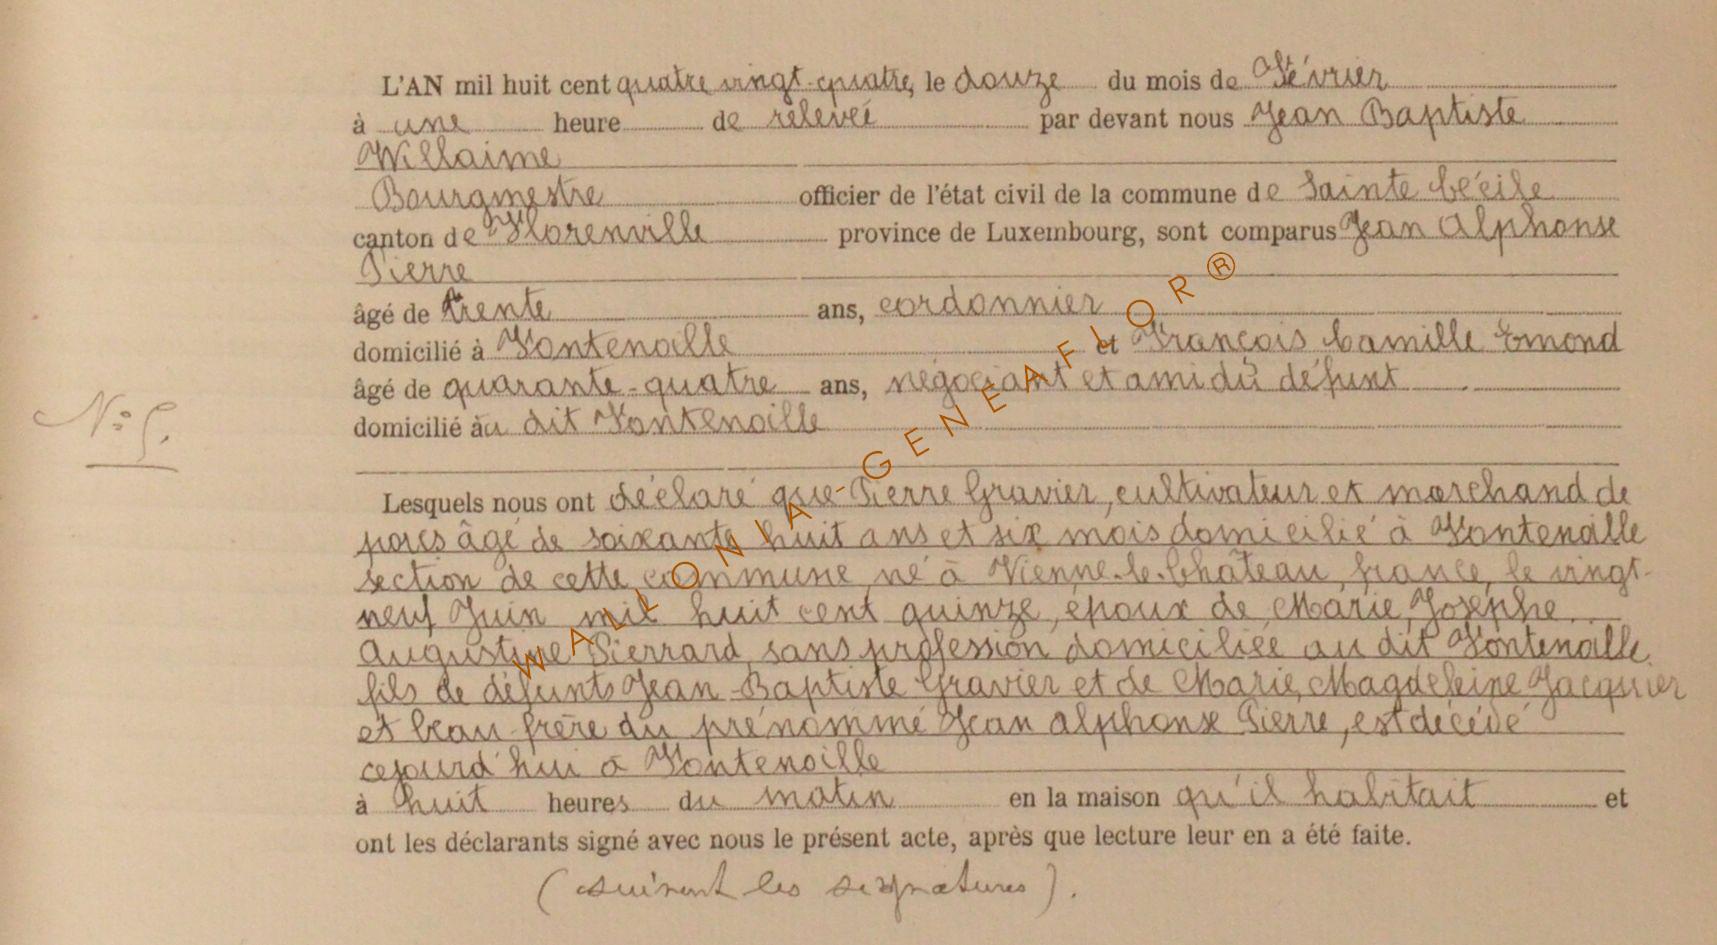 L'AN mil huit cent quatre vingt-quatre, le douze du mois de Février
à une heure de relevée par devant nous Jean Baptiste
Willaime
Bourgmestre officier de l'état civil de la commune de Sainte Cécile
canton de Florenville province de Luxembourg, sont comparus Jean Alphonse
Pierre
âgé de trente ans, cordonnier
domicilié à Fontenoille et François Camille Emond
âgé de quarante-quatre ans, négociant et ami du défunt
domicilié àu dit Fontenoille
N° 5.
Lesquels nous ont déclaré que Pierre Gravier, cultivateur et marchand de
porcs âgé de soixante huit ans et six mois domicilié à Fontenoille
section de cette commune, né à Vienne-le-Château, france, le vingt-
neuf Juin mil huit cent quinze, époux de Marie, Josèphe
Augustine Pierrard, sans profession domiciliée au dit Fontenoille,
fils de défunts Jean-Baptiste Gravier et de Marie, Magdeleine Jacquier
et beau-frère du prénommé Jean Alphonse Pierre, est décédé
cejourd'hui à Fontenoille
à huit heures du matin en la maison qu'il habitait et
ont les déclarants signé avec nous le présent acte, après que lecture leur en a été faite.
(suivent les signatures).
WALLONIA-GENEAFLOR®